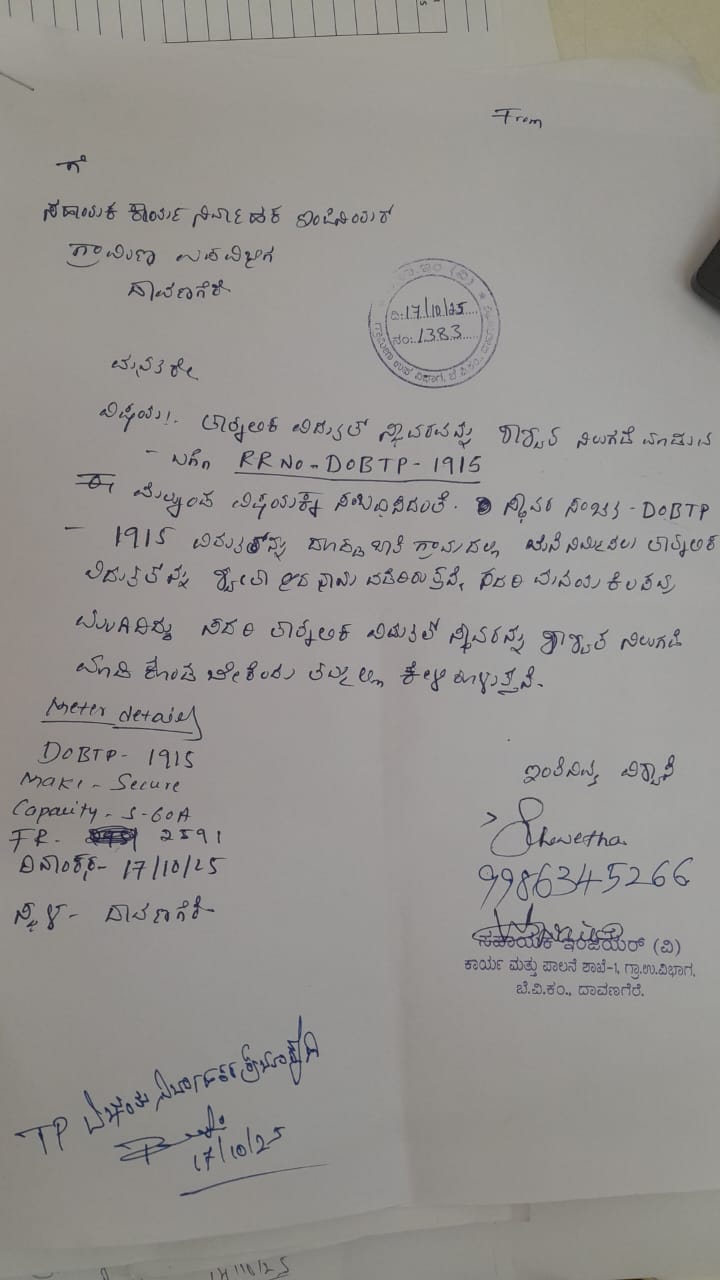 From
ಗೆ
ಸಹಾಯಕ ಕಾರ್ಯ ನಿರ್ವಾಹಕ ಇಂಜಿನಿಯರ್
ಗ್ರಾಮೀಣ ಉಪವಿಭಾಗ
ದಾವಣಗೆರೆ
ದಿ:17/10/25
ನಂ:1383
ಗ್ರಾಮೀಣ ಉಪ ವಿಭಾಗ, ಬೆ.ವಿ.ಕಂ.,
ಮಾನ್ಯರೇ
ವಿಷಯ:- ತಾತ್ಕಾಲಿಕ ವಿದ್ಯುತ್ ಸ್ಥಾವರವನ್ನು ಶಾಶ್ವತ ನಿಲುಗಡೆ ಮಾಡುವ
- ಬಗ್ಗೆ RR No - DOBTP - 1915
ಈ ಮೇಲ್ಕಂಡ ವಿಷಯಕ್ಕೆ ಸಂಬಂಧಿಸಿದಂತೆ. ಸ್ಥಾವರ ಸಂಖ್ಯೆ - DOBTP
- 1915 ವಿದ್ಯುತ್‌ನ್ನು ಗ್ರಾಮದಲ್ಲಿ ಮನೆ ನಿರ್ಮಿಸಲು ತಾತ್ಕಾಲಿಕ
ವಿದ್ಯುತ್‌ನ್ನು ಶ್ವೇತಾ ಆದ ನಾನು ಪಡೆದಿರುತ್ತೇನೆ, ಸದರಿ ಮನೆಯ ಕೆಲಸವು
ಮುಗಿದಿದ್ದು ಸದರಿ ತಾತ್ಕಾಲಿಕ ವಿದ್ಯುತ್ ಸ್ಥಾವರನ್ನು ಶಾಶ್ವತ ನಿಲುಗಡೆ
ಮಾಡಿ ಕೊಡಬೇಕೆಂದು ತಮ್ಮಲ್ಲಿ ಕೇಳಿಕೊಳ್ಳುತ್ತೇನೆ.
Meter details
DOBTP - 1915
Make - Secure
Capacity - 5-60A
FR - 2591
ದಿನಾಂಕ - 17/10/25
ಸ್ಥಳ - ದಾವಣಗೆರೆ
ಇಂತಿನಿಮ್ಮ ವಿಶ್ವಾಸಿ
Shwetha
9986345266
ಸಹಾಯಕ ಇಂಜಿನಿಯರ್ (ವಿ)
ಕಾರ್ಯ ಮತ್ತು ಪಾಲನೆ ಶಾಖೆ-1, ಗ್ರಾ.ಉ.ವಿಭಾಗ,
ಬೆ.ವಿ.ಕಂ., ದಾವಣಗೆರೆ.
TP
17/10/25